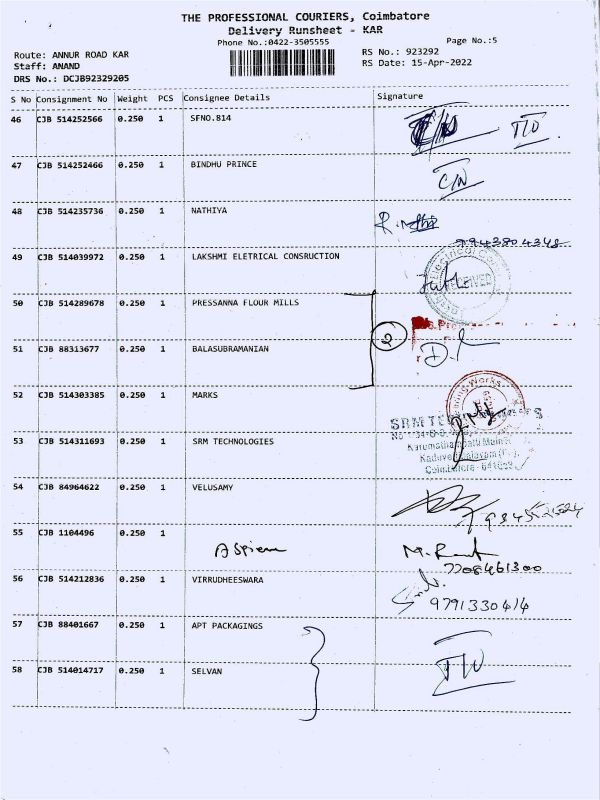 THE PROFESSIONAL COURIERS, Coimbatore
Delivery Runsheet - KAR
Phone No.:0422-3505555
Page No.:5
Route: ANNUR ROAD KAR
RS No.: 923292
Staff: ANAND
RS Date: 15-Apr-2022
DRS No.: DCJB92329205
S No Consignment No Weight PCS Consignee Details Signature
46 CJB 514252566 0.250 1 SFNO.814
47 CJB 514252466 0.250 1 BINDHU PRINCE
C/N
48 CJB 514235736 0.250 1 NATHIYA
9943804348
49 CJB 514039972 0.250 1 LAKSHMI ELETRICAL CONSRUCTION
RECEIVED
50 CJB 514289678 0.250 1 PRESSANNA FLOUR MILLS
2
51 CJB 88313677 0.250 1 BALASUBRAMANIAN
52 CJB 514303385 0.250 1 MARKS
53 CJB 514311693 0.250 1 SRM TECHNOLOGIES
54 CJB 84964622 0.250 1 VELUSAMY
55 CJB 1104496 0.250 1
7708461300
56 CJB 514212836 0.250 1 VIRRUDHEESWARA
9791330414
57 CJB 88401667 0.250 1 APT PACKAGINGS
58 CJB 514014717 0.250 1 SELVAN